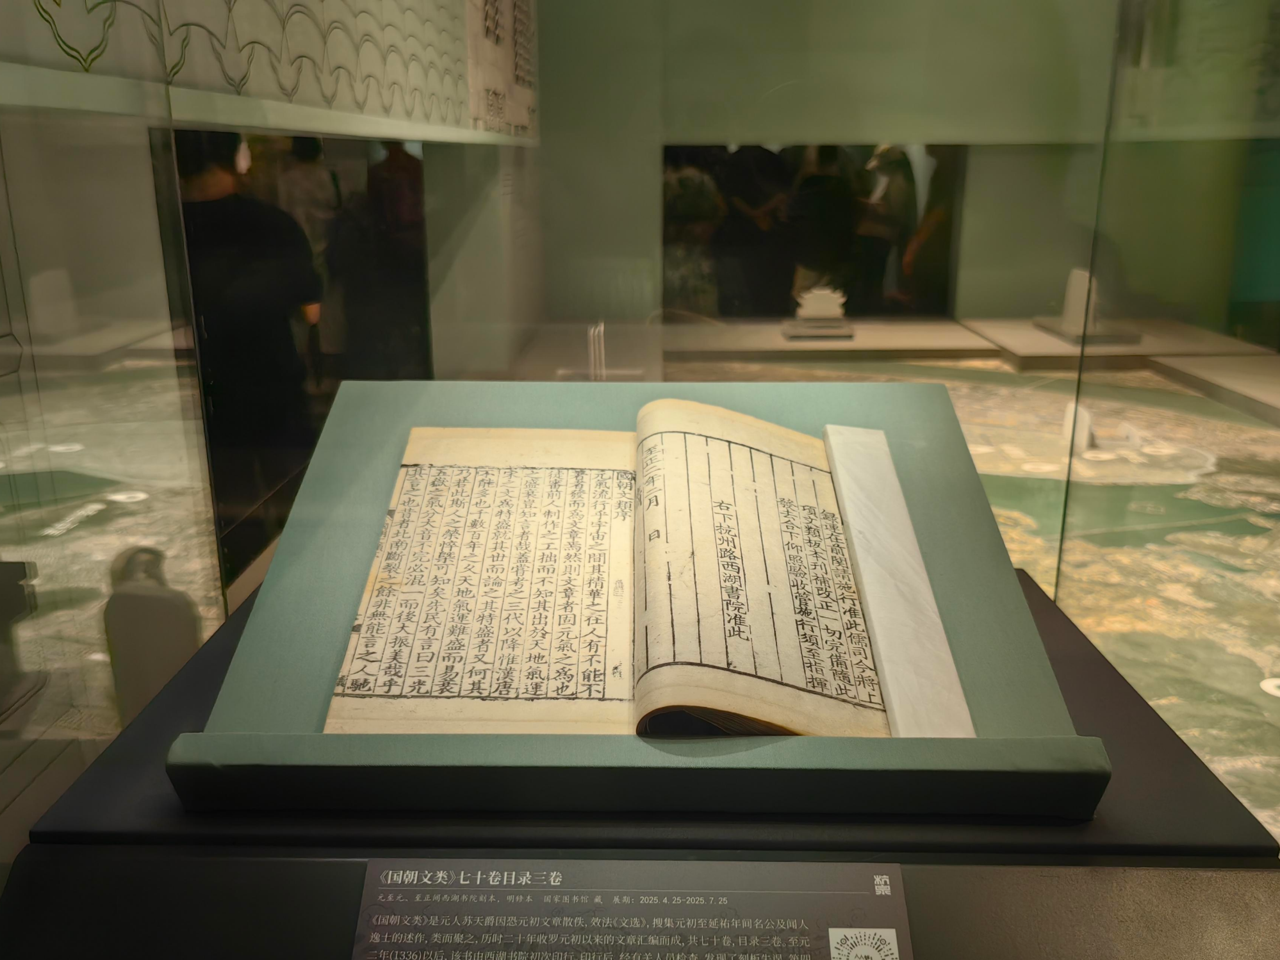 項文類板本刊補改正一切完備隨此
發去合下仰照驗收管施行須至指揮
右下杭州路西湖書院准此
至正二年二月　日
國朝文類序
元氣流行乎宇宙之間其精華之在人有不能不
著者發而為文章焉然則文章者固元氣之為也
徒審前人制作之工拙而不知其出於天地氣運
之盛衰豈知言者哉蓋嘗考之三代以降惟漢唐
宋之文為特盛就其世而論之其特盛者又何其
不能多也千數百年之久天地氣運難盛而易衰
乃若此斯文之榮瘁可知矣先民有言曰三光
五嶽之氣分大音不完必混一而後大振美哉乎
其言之也昔者北南斷裂之餘非無能言之人馳
《国朝文类》七十卷目录三卷
元至元、至正间西湖书院刻本，明修本　国家图书馆 藏　展期：2025.4.25-2025.7.25
《国朝文类》是元人苏天爵因恐元初文章散佚，效法《文选》，搜集元初至延祐年间名公及闻人
逸士的述作，类而聚之，历时二十年收罗元初以来的文章汇编而成，共七十卷，目录三卷。至元
二年(1336)以后，该书由西湖书院初次印行。印行后，经有关人员检查，发现了刻板失误